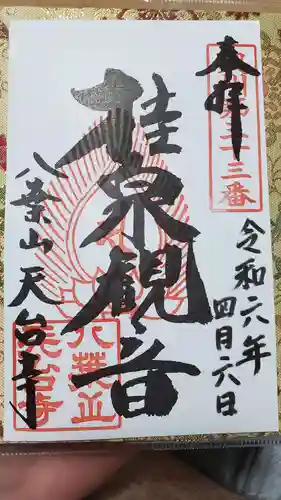 奉拝
第三十三番
桂泉観音
令和六年
四月六日
八葉山天台寺
八葉山
天台寺